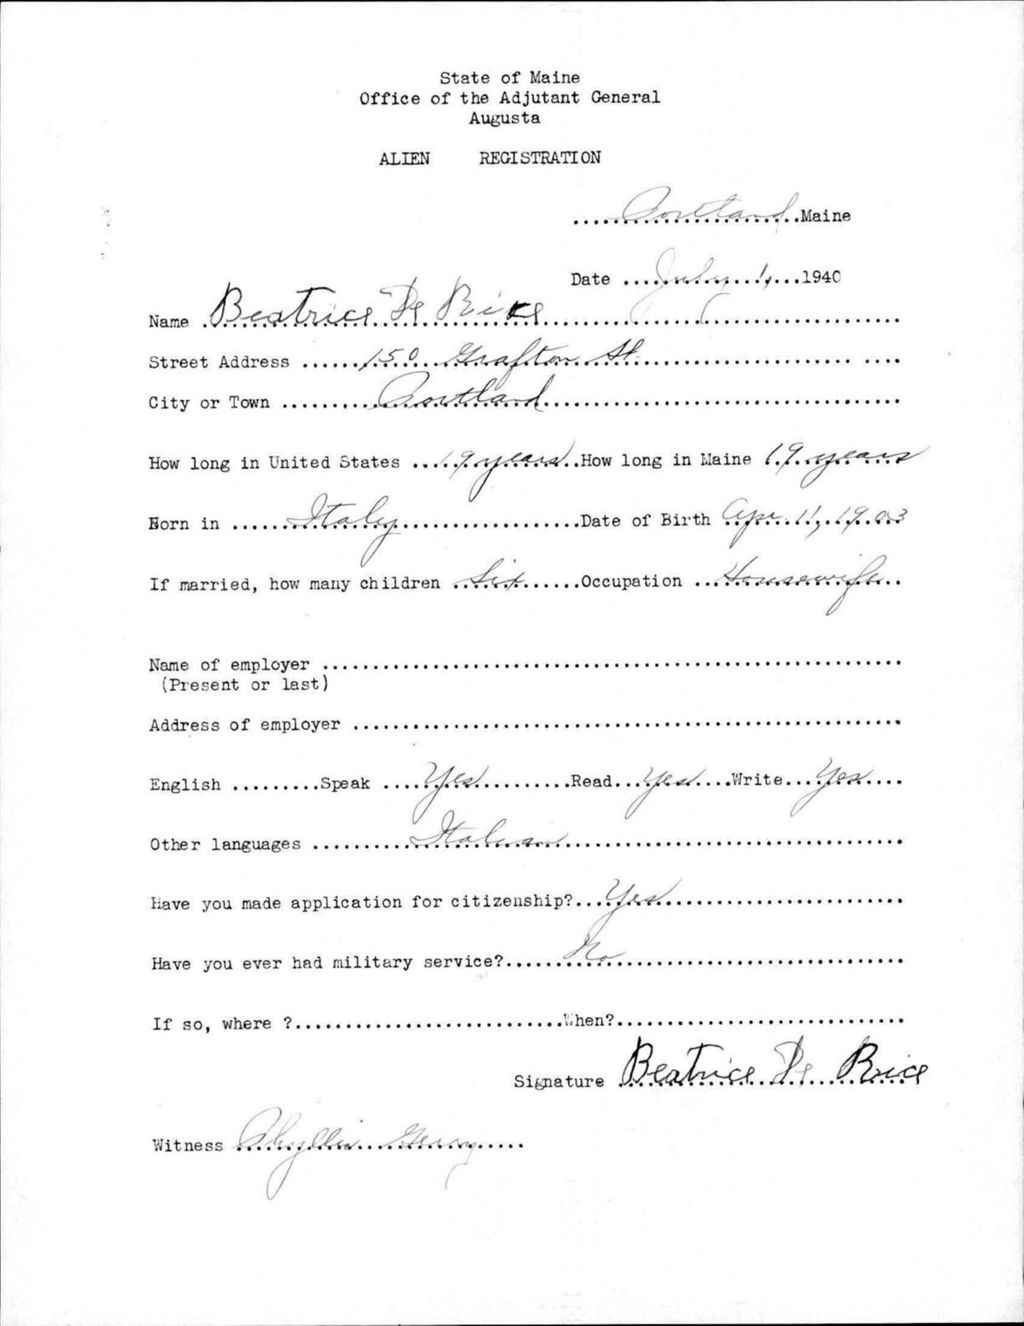 State of Maine
Office of the Adjutant General
Augusta
ALIEN REGISTRATION
Portland Maine
Date July 1, 1940
Name Beatrice De Rice
Street Address 150 Grafton St.
City or Town Portland
How long in United States 19 years How long in Maine 19 years
Born in Italy Date of Birth Apr. 11, 1903
If married, how many children Six Occupation Housewife
Name of employer
(Present or last)
Address of employer
English Speak Yes Read Yes Write Yes
Other languages Italian
Have you made application for citizenship? Yes
Have you ever had military service? No
If so, where ? When?
Signature Beatrice De Rice
Witness Phyllis Gerry